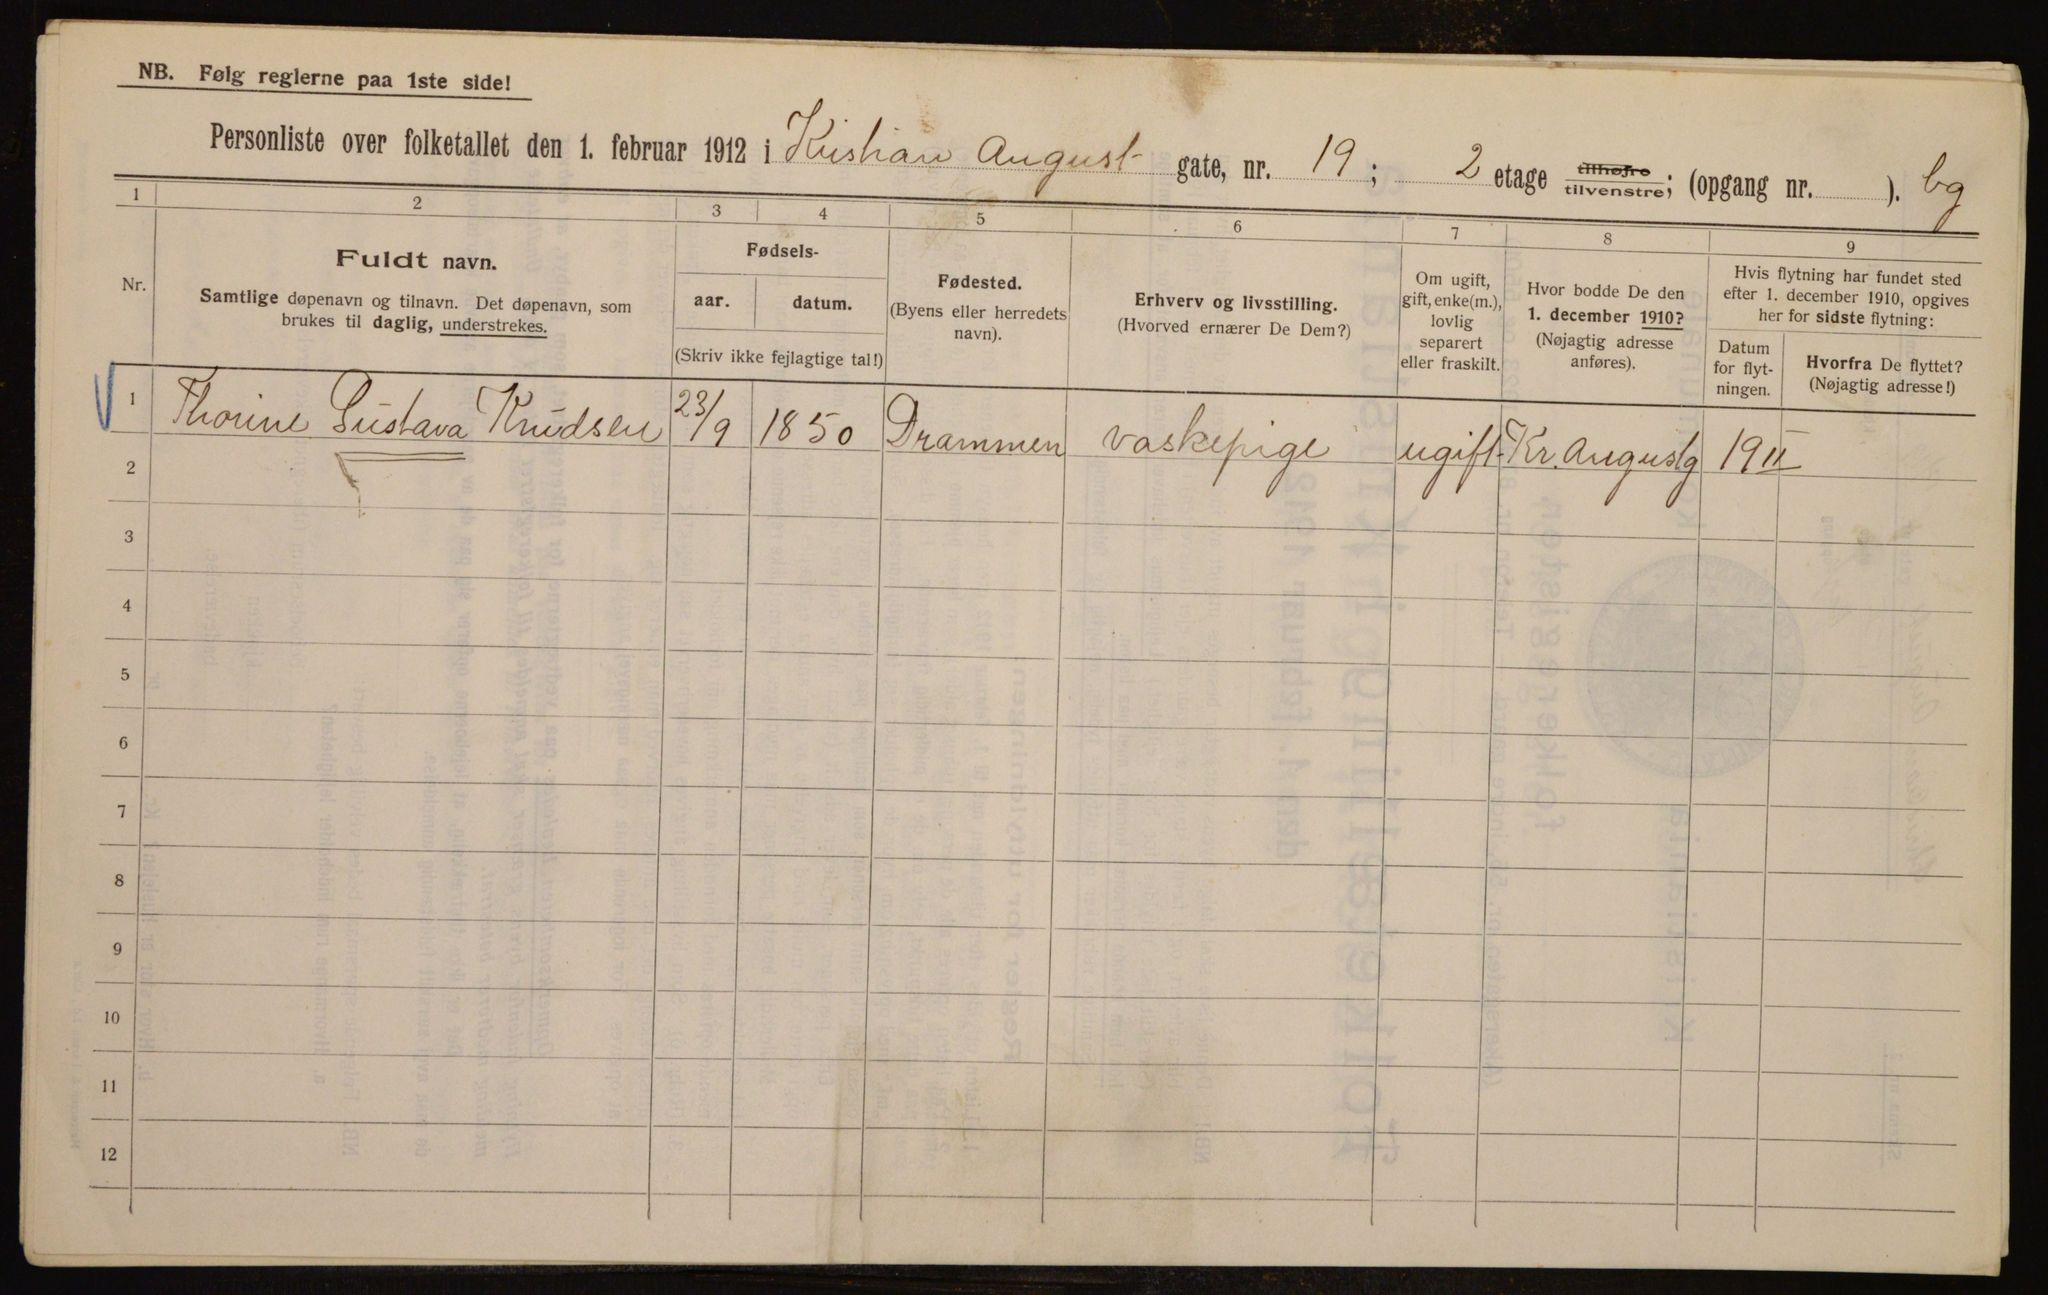 NB. Følg reglerne paa 1ste side!
Personliste over folketallet den 1. februar 1912 i Kristian August gate, nr. 19; 2 etage tilhøire tilvenstre; (opgang nr. ). bg
1 2 3 4 5 6 7 8 9
Nr.
Fuldt navn.
Samtlige døpenavn og tilnavn. Det døpenavn, som
brukes til daglig, understrekes.
Fødsels-
aar. datum.
(Skriv ikke fejlagtige tal!)
Fødested.
(Byens eller herredets
navn).
Erhverv og livsstilling.
(Hvorved ernærer De Dem?)
Om ugift,
gift, enke(m.),
lovlig
separert
eller fraskilt.
Hvor bodde De den
1. december 1910?
(Nøjagtig adresse
anføres).
Hvis flytning har fundet sted
efter 1. december 1910, opgives
her for sidste flytning:
Datum
for flyt-
ningen.
Hvorfra De flyttet?
(Nøjagtig adresse!)
1 Thorine Gustava Knudsen 23/9 1850 Drammen vaskepige ugift Kr. Augustg 1911
2
3
4
5
6
7
8
9
10
11
12